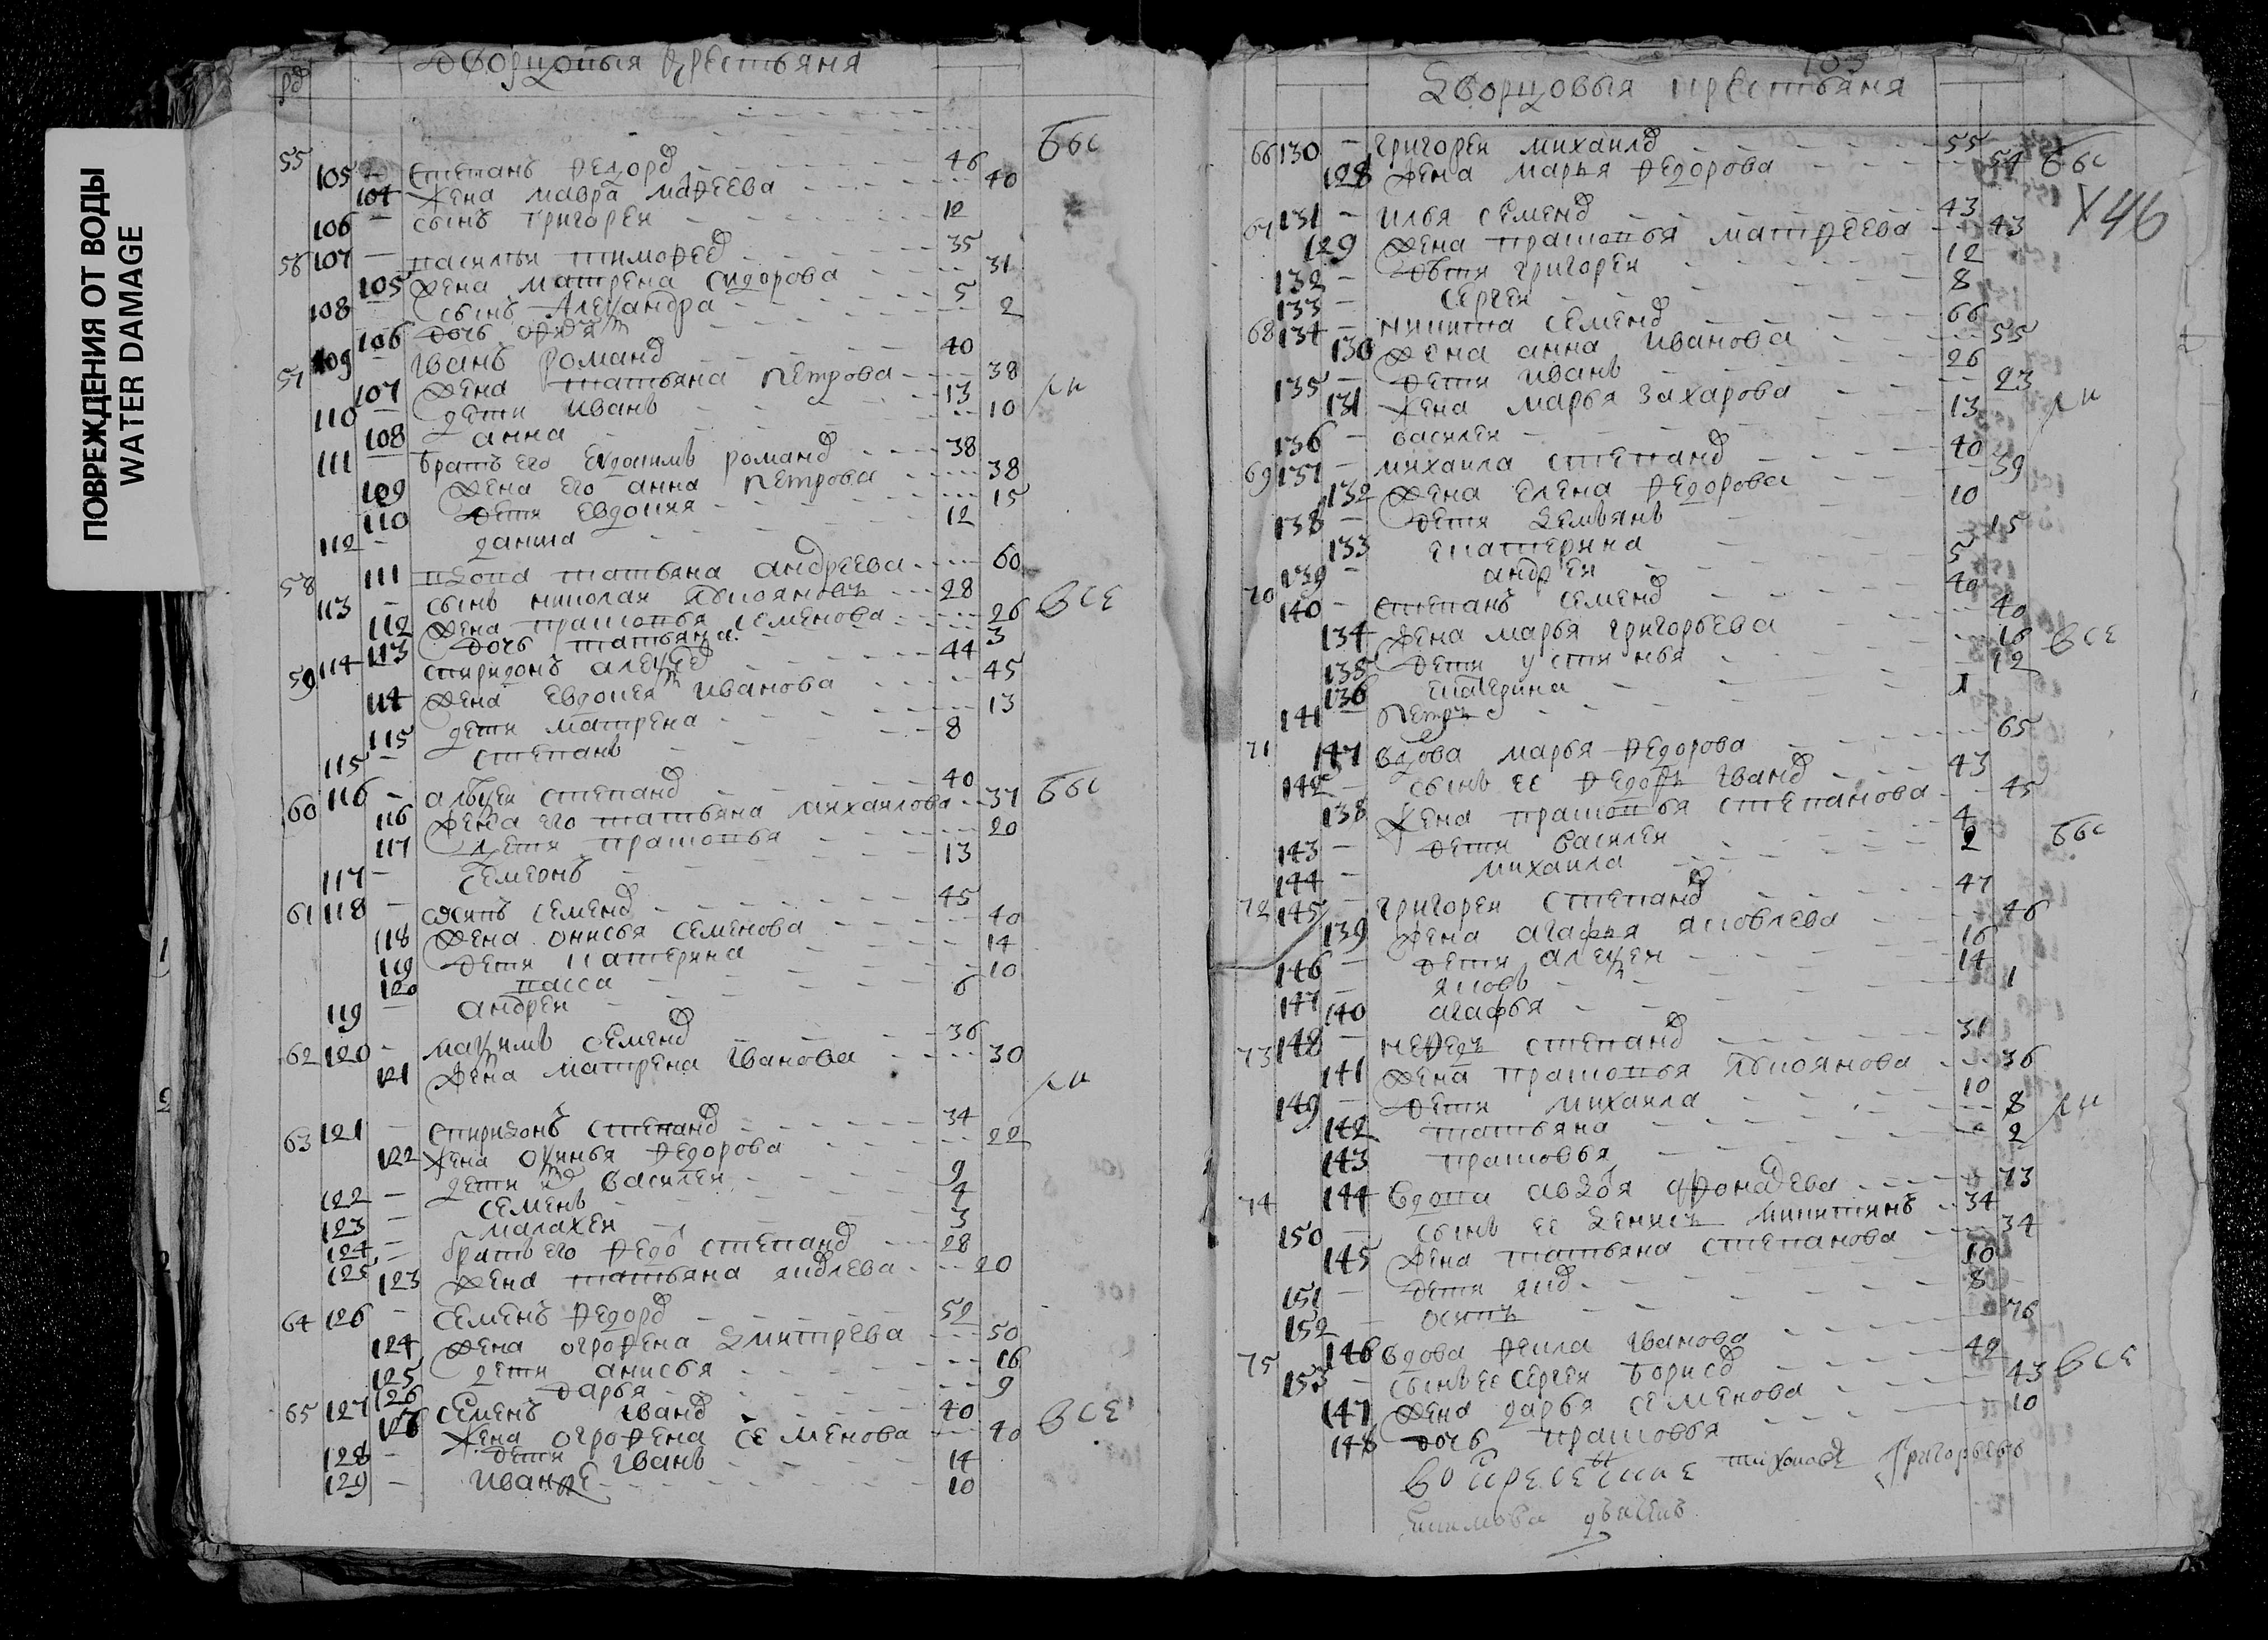 ПОВРЕЖДЕНИЯ ОТ ВОДЫ
WATER DAMAGE
дворцовыя крестьяня
55 105 — степанъ федоров 46 ббс
104 жена мавра мафеева 40
106 — сынъ григореи 12
56 107 — василеи тимофеев 35
105 жена матрена сидорова 31
108 — сынъ Александра 5
106 дочь 2
57 109 — іванъ романов 40
107 жена татьяна петрова 38
110 — дети иванъ 13
108 анна 10
111 братъ его евдокимъ романов 38
109 жена его анна петрова 38
110 дети евдокия 15
112 — данила 12
58 111 вдова татьяна андреева 60
113 — сынъ николаи 28 все
112 жена прасковья семенова 26
113 дочь татьяна 3
59 114 спиридонъ алексеев 44
114 жена евдокея иванова 45
115 дети матрена 13
115 — степанъ 8
60 116 — алексеи степанов 40 ббс
116 жена его татьяна михаилова 37
117 дети прасковья 20
117 — семионъ 13
61 118 — осипъ семенов 45
118 жена онисья семенова 40
119 дети катерина 14
120 васса 10
119 — андреи 6
62 120 — максимъ семенов 36
121 жена матрена іванова 30
63 121 — спиридонъ степанов 34
122 жена федорова 22
122 — дети василеи 9
123 — семенъ 4
124 — малахеи 3
125 братъ его федоръ степанов 28
123 жена татьяна яковлева 20
64 126 — семенъ федоров 52
124 жена огрофена дмитрева 50
125 дети анисья 16
126 дарья 9
65 127 семенъ іванов 40 все
жена огрофена семенова 40
128 — дети іванъ 14
129 — иванже 10
103
дворцовыя крестьяня
66 130 — григореи михаилов 55 ббс
128 жена марья федорова 54
67 131 — илья семенов 43 X46
129 жена прасковья матфеева 43
132 — дети григореи 12
133 — сергеи 8
68 134 — никита семенов 66
130 жена анна иванова 55
135 — дети иванъ 26
131 жена марья захарова 23
136 — василеи 13
69 137 — михаила степанов 40
132 жена елена федорова 39
138 — дети демьянъ 10
133 екатерина 15
139 — андреи 5
70 140 — степанъ семенов 40
134 жена марья григорьева 40
135 дети устинья 16 все
136 катерина 12
141 — петръ 1
71 147 вдова марья федорова 65
142 — сынъ ее федоръ іванов 43
138 жена прасковья степанова 45
143 — дети василеи 4 ббс
144 — михаила 2
72 145 — григореи степанов 47
139 жена агафья яковлева 46
146 — дети алексеи 16
147 — яковъ 14
140 агафья 1
73 148 — нефедъ степанов 31
141 жена прасковья 36
149 — дети михаила 10
142 татьяна 8
143 прасковья 2
74 144 вдова 73
150 — сынъ ее денисъ никитинъ 34
145 жена татьяна степанова 34
151 дети яков 10
152 осипъ 8
75 146 вдова іванова 76
153 — сынъ ее сергеи борисов 42 все
147 жена дарья семенова 43
148 дочь прасковья 10
тихонов григорьевъ